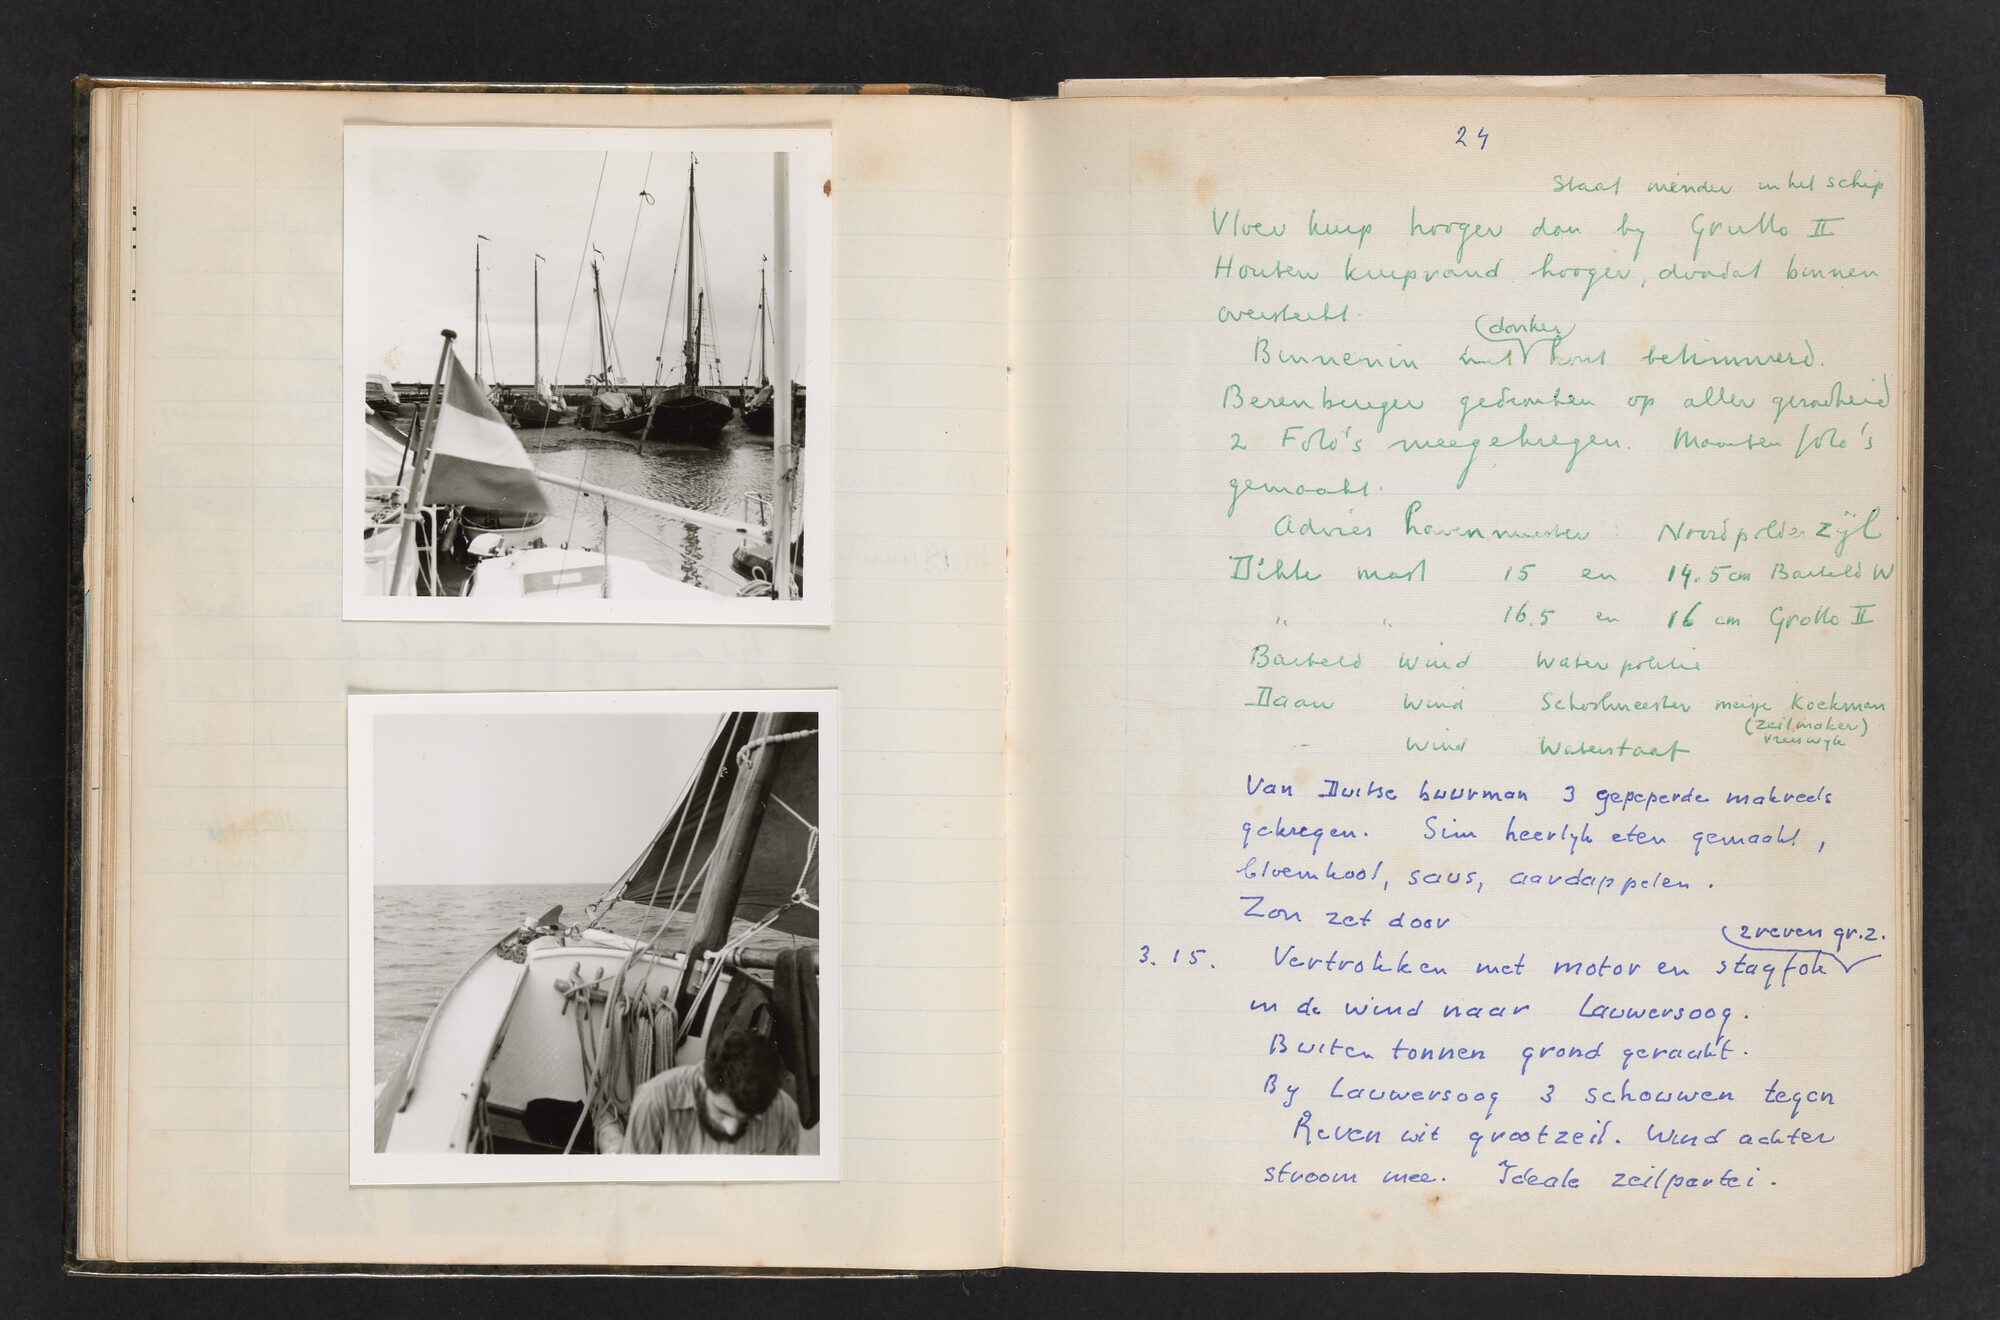 24
staat minder in het schip
Vloer kuip hooger dan by Grutto II
Houten kuiprand hooger, doodat binnen
oversteekt.
(donker)
Binnenin met hout betimmerd.
Berenburger gedronken op aller gezondheid
2 Foto's meegekregen. Maarten foto's
gemaakt.
Advies havenmeester: Noordpolderzyl
Dikte mast 15 en 14.5 cm Barteld W
" " 16.5 en 16 cm Grutto II
Barteld Wind Waterpolitie
Daan Wind Schoolmeester meisje Koekman
(zeilmaker)
Vreeswyk
- Wind Waterstaat
Van Duitse buurman 3 gepeperde makreels
gekregen. Sim heerlyk eten gemaakt,
bloemkool, saus, aardappelen.
Zon zet door
2 reven gr.z.
3.15. Vertrokken met motor en stagfok
in de wind naar Lauwersoog.
Buiten tonnen grond geraakt.
By Lauwersoog 3 schouwen tegen
Reven uit grootzeil. Wind achter
stroom mee. Ideale zeilpartei.